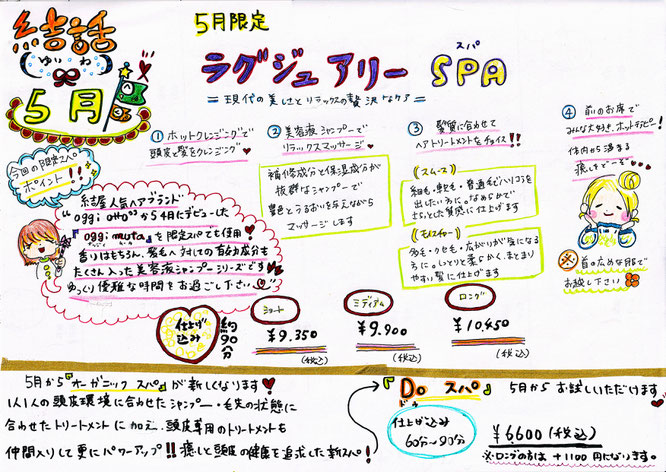 結話
(ゆいわ)
5月
5月限定
ラグジュアリー SPA
スパ
=現代の美しさとリラックスの贅沢なケア=
今回の限定スペ
ポイント!!
結屋人気ヘアブランド
"oggi ottoから4月にデビューした
『oggi muta』を限定スパでも使用
香りはもちろん、髪毛へ対しての有効成分も
たくさん入った美容液シャンプーシリーズです
ゆっくり優雅な時間をお過し下さい"
① ホットクレンジングで
頭皮と髪をクレンジング
② 美容液シャンプーで
リラックスマッサージ
補修成分と保湿成分が
抜群なシャンプーで
艶とうるおいを与えながら
マッサージします
③ 髪質に合わせて
ヘアトリートメントをチョイス!!
《スムース》
細毛・軟毛・普通毛でハリコシを
出したい方に。なめらかで
さらっとした質感に仕上げます
《モイスチャー》
多毛・クセ毛・広がりが気になる
方に。しっとりと柔らかく、まとまり
やすい髪に仕上げます
④ 首のお席で
みんな大好き、ホットデピー!
体内から温まる
癒しをどーぞ
※首の広めな服で
お越し下さい
仕上げ
込み
約90分
ショート
¥9.350
(税込)
ミディアム
¥9.900
(税込)
ロング
¥10,450
(税込)
5月から『オーガニックスパ』が新しくなります
1人1人の頭皮環境に合わせたシャンプー・毛先の状態に
合わせたトリートメントに加え、頭皮専用のトリートメントも
仲間入りして更にパワーアップ!!癒しと頭皮の健康を追求した新スパ!
『Do スパ』
ドゥ
5月からお試しいただけます
仕上げ込み
60分~90分
¥6600(税込)
※ロングの方は+1100円になります。